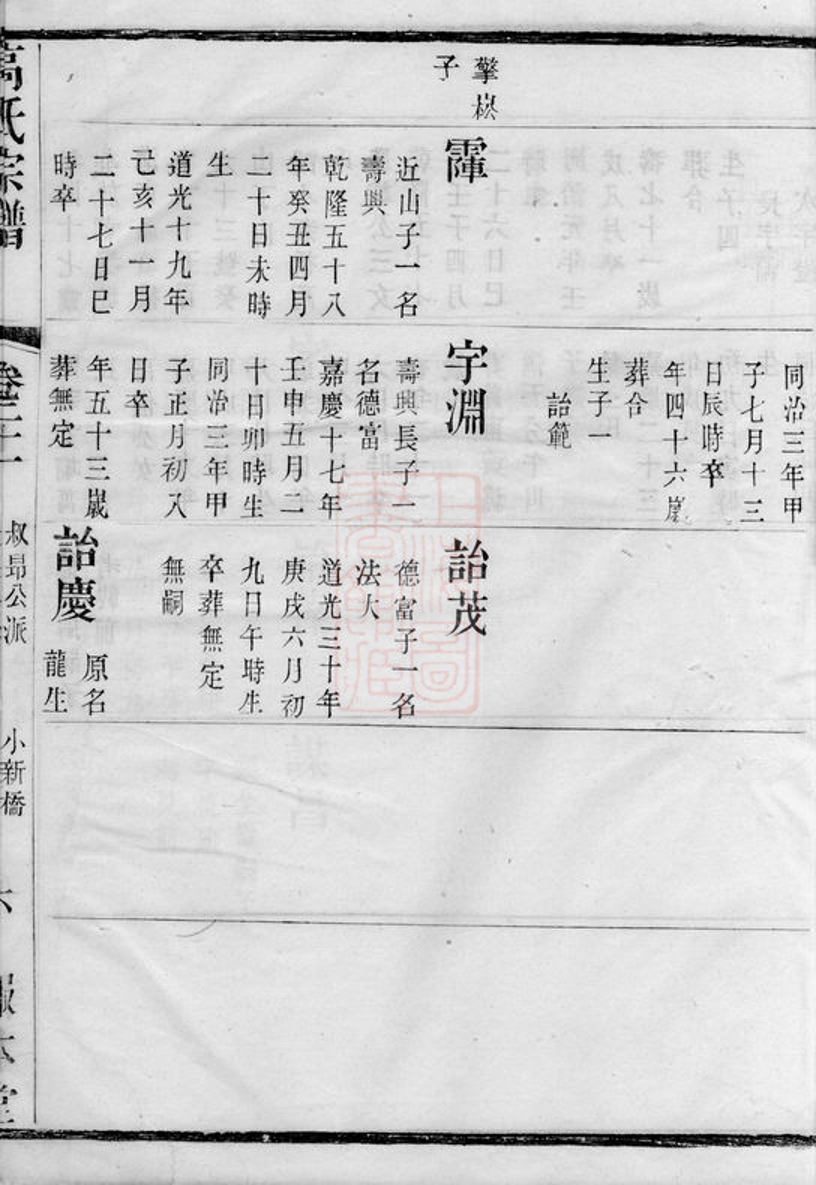 擎崧
子
霏
近山子一名
壽興
乾隆五十八
年癸丑四月
二十日未時
生
道光十九年
己亥十一月
二十七日巳
時卒
同治三年甲
子七月十三
日辰時卒
年四十六歲
葬合
生子一
詒範
字淵
壽興長子一
名德富
嘉慶十七年
壬申五月二
十日卯時生
同治三年甲
子正月初八
日卒
年五十三歲
葬無定
詒茂
德富子一名
法大
道光三十年
庚戌六月初
九日午時生
卒葬無定
無嗣
詒慶
原名
龍生
高氏宗譜
叔昂公派
小新橋
六
報本堂